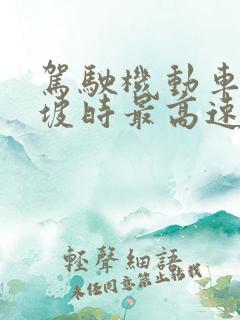 駕駛機動車
坡時最高速
輕聲細語
未任同意禁止轉載